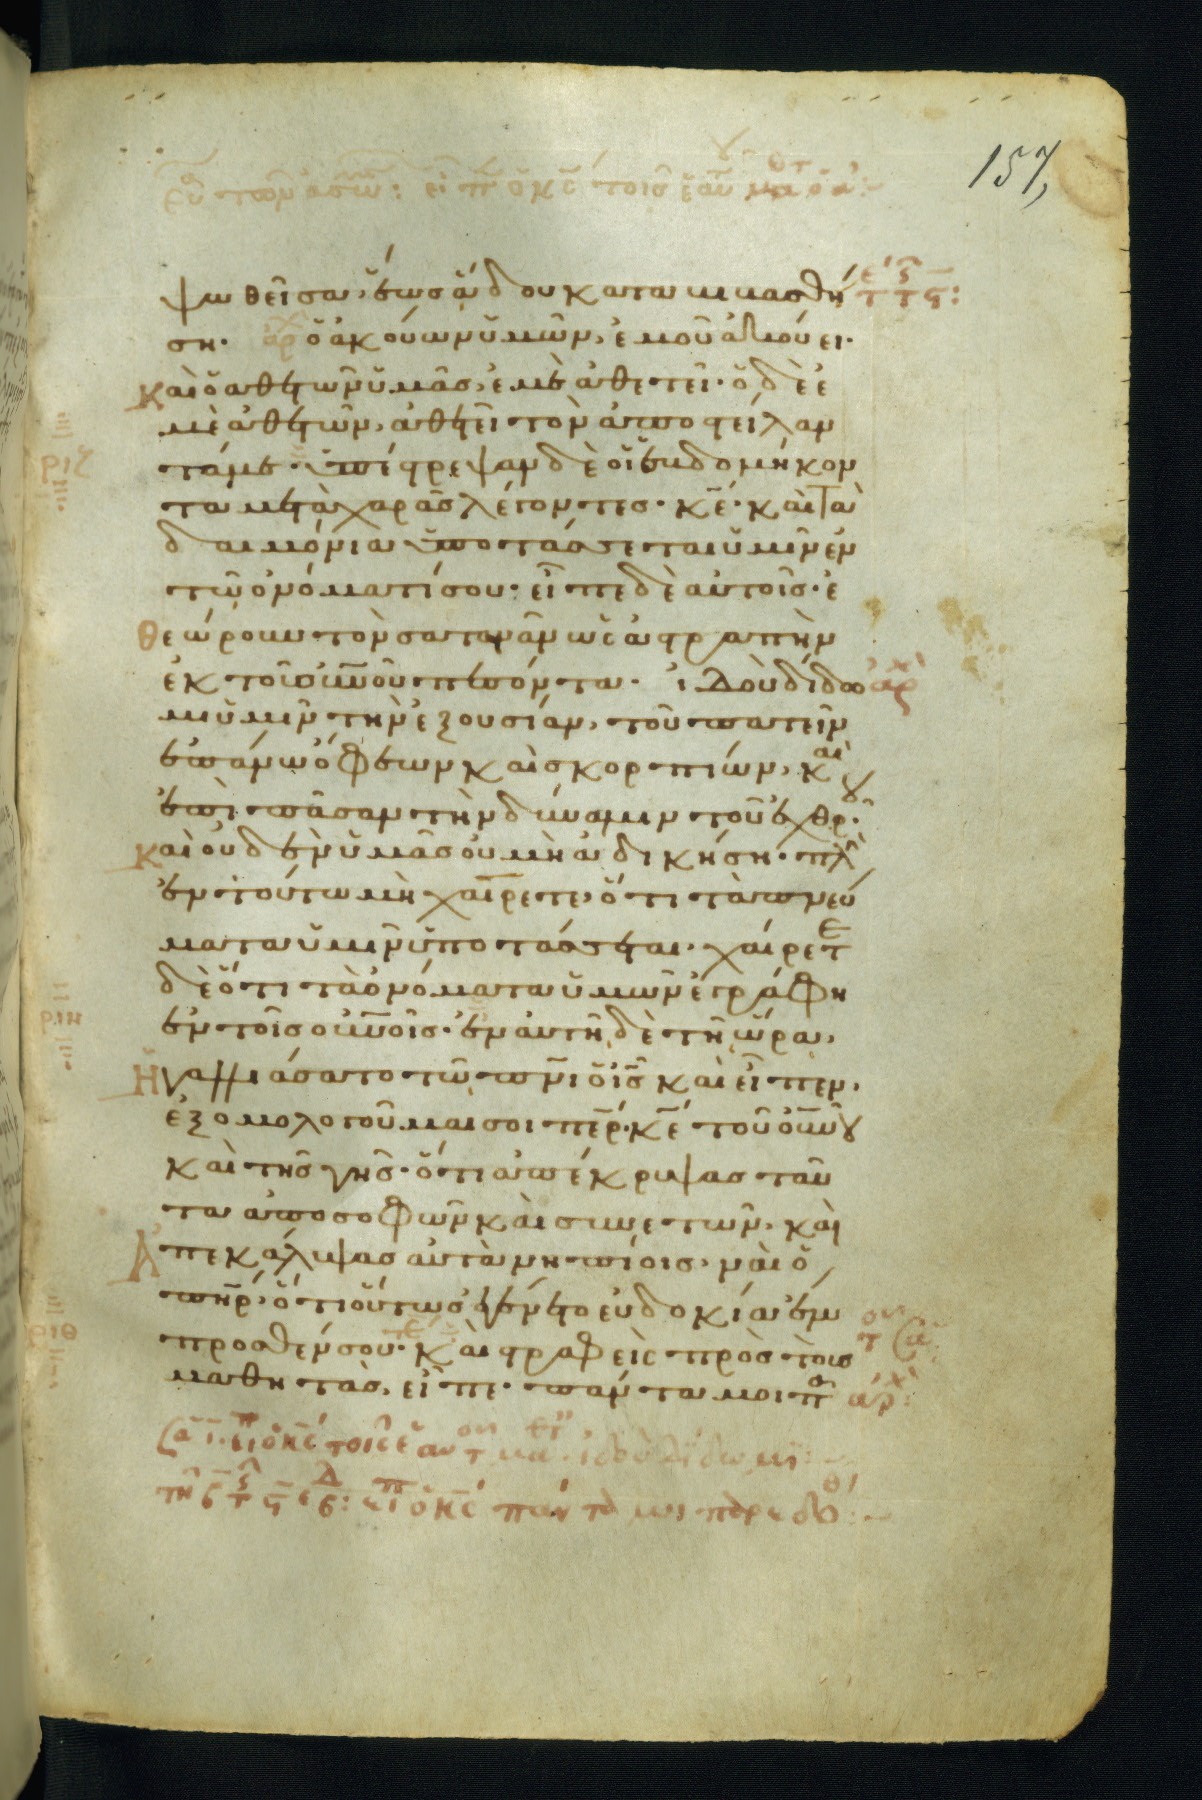 157
ψωθεῖσα, ἕως ᾅδου καταβιβασθή
ση. ἀρχ ὁ ἀκούων ὑμῶν, ἐμοῦ ἀκούει.
καὶ ὁ ἀθετῶν ὑμᾶς, ἐμὲ ἀθετεῖ. ὁ δὲ ἐ
μὲ ἀθετῶν, ἀθετεῖ τὸν ἀποστείλαν
τά με. ὑπέστρεψαν δὲ οἱ ἑβδομήκον
τα μετὰ χαρᾶς λέγοντες. κε̄. καὶ τὰ
δαιμόνια ὑποτάσσεται ὑμῖν ἐν
τῷ ὀνόματί σου. εἶπε δὲ αὐτοῖς. ἐ
θεώρουν τὸν σατανᾶν ὡς ἀστραπὴν
ἐκ τοῦ οὐνοῦ πεσόντα. ἰδοὺ δίδω ἀρχ
μι ὑμῖν τὴν ἐξουσίαν, τοῦ πατεῖν
ἐπάνω ὄφεων καὶ σκορπίων, καὶ
ἐπὶ πᾶσαν τὴν δύναμιν τοῦ ἐχθροῦ.
καὶ οὐδὲν ὑμᾶς οὐ μὴ ἀδικήση. πλὴ
ἐν τούτω μὴ χαίρετε, ὅτι τὰ πνεύ
ματα ὑμῖν ὑποτάσσεται. χαίρετε
δὲ ὅτι τὰ ὀνόματα ὑμῶν ἐγράφη
ἐν τοῖς οὐνοῖς. ἐν αὐτῇ δὲ τῇ ὥρα,
ἠγαλλιάσατο τῷ πνι ὁ ις̄ καὶ εἶπεν,
ἐξομολογοῦμαι σοι περ. κε̄ τοῦ οὐνου
καὶ τῆς γῆς. ὅτι ἀπέκρυψας ταῦ
τα ἀπὸ σοφῶν καὶ συνετῶν, καὶ
ἀπεκάλυψας αὐτὰ νηπίοις, ναὶ ὁ
πηρ, ὅτι οὕτως ἐγένετο εὐδοκία ἔμ
προσθέν σου. καὶ στραφεὶς πρὸς τοὺς
μαθητὰς, εἶπε. πάντα μοι π ἀρχ
ριζ
ριη
ριθ
εἶπ ὁ κς τοῖς ἑαυτ μα. ἰδοὺ δίδωμι
εἶπ ὁ κς πάντα μοι παρεδοθ